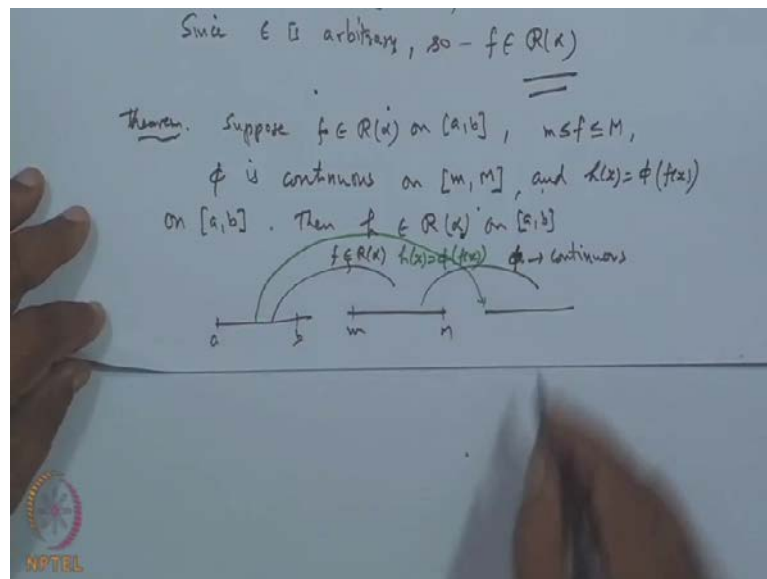 Since ε is arbitrary, so - f ∈ R(α)
Theorem. Suppose f ∈ R(α) on [a,b], m ≤ f ≤ M,
ϕ is continuous on [m, M], and h(x) = ϕ(f(x))
on [a,b]. Then h ∈ R(α) on [a,b]
f ∈ R(α) h(x)=ϕ(f(x)) ϕ → continuous
a b m M
NPTEL